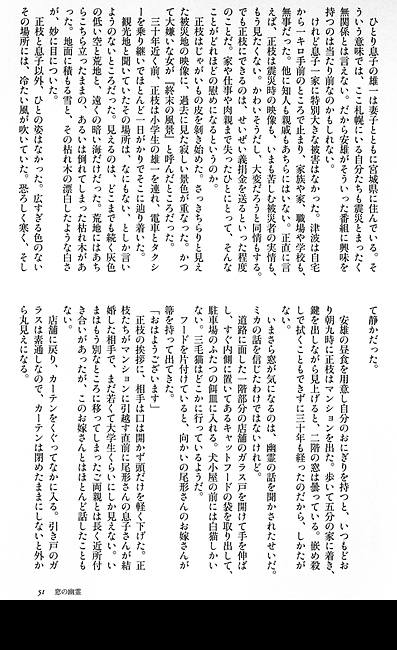 ひとり息子の雄一は妻子とともに宮城県に住んでいる。そ
ういう意味では、ここ札幌にいる自分たちも震災とまったく
無関係とは言えない。だから安雄がそういった番組に興味を
持つのは当たり前なのかもしれない。
けれど息子一家に特別大きな被害はなかった。津波は自宅
から一キロ手前のところで止まり、家族や家、職場や学校も、
無事だった。他に知人も親戚もあちらにはいない。正直に言
えば、正枝は震災時の映像も、いまも苦しむ被災者の実情も、
もう見たくない。かわいそうだし、大変だろうと同情もする。
でも正枝にできるのは、せいぜい義捐金を送るといった程度
のことだ。家や仕事や肉親まで失ったひとにとって、そんな
ことがどれほどの慰めになるというのか。
正枝はじゃがいもの皮を剝き始めた。さっきちらりと見え
た被災地の映像に、過去に見た寂しい景色が重なった。かつ
て大嫌いな女が「終末の風景」と呼んだところだった。
三十年近く前、正枝は小学生の雄一を連れ、電車とタクシ
ーを乗り継いでほとんど一日がかりでそこに辿り着いた。
観光地と聞いていたその場所はなにもない、としか言い
ようのないところだった。見えるのは、どこまでも続く灰色
の低い空と荒地と、遠くの暗い海だけだった。荒地にはあち
らこちら立ったままの、あるいは倒れてしまった枯れ木があ
った。地面に積もる雪と、その枯れ木の漂白したような白さ
が、妙に目についた。
正枝と息子以外、ひとの姿はなかった。広すぎる色のない
その場所には、冷たい風が吹いていた。恐ろしく寒く、そし
て静かだった。
安雄の昼食を用意し自分のおにぎりを持つと、いつもどお
り朝九時に正枝はマンションを出た。歩いて五分の家に着き、
鍵を出しながら見上げると、二階の窓は曇っている。嵌め殺
しで拭くこともできずに三十年も経ったのだから、しかたが
ない。
いまさら窓が気になるのは、幽霊の話を聞かされたせいだ。
ミカの話を信じたわけではないけれど。
道路に面した一階部分の店舗のガラス戸を開けて手を伸ば
し、すぐ内側に置いてあるキャットフードの袋を取り出して、
駐車場のふたつの餌皿に入れる。犬小屋の前には白猫しかい
ない。三毛猫はどこかに行っているようだ。
フードを片付けていると、向かいの尾形さんのお嫁さんが
箒を持って出てきた。
「おはようございます」
正枝の挨拶に、相手は口は開かず頭だけを軽く下げた。正
枝たちがマンションに引越す直前に尾形さんの息子さんが結
婚した相手で、まだ若くて大学生くらいにしか見えない。い
まはもう別なところに移ってしまったご両親とは長く近所付
き合いがあったが、このお嫁さんとはほとんど話したことも
ない。
店舗に戻り、カーテンをくぐってなかに入る。引き戸のガ
ラスは素通しなので、カーテンは閉めたままにしないと外か
ら丸見えになる。
51 窓の幽霊